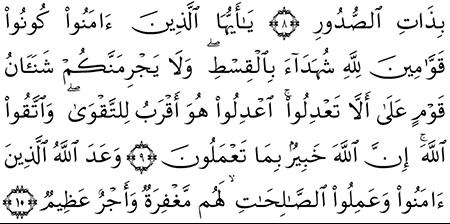 بِذَاتِ ٱلصُّدُورِ ﴿٨﴾ يَـٰٓأَيُّهَا ٱلَّذِينَ ءَامَنُوا۟ كُونُوا۟
قَوَّٰمِينَ لِلَّهِ شُهَدَآءَ بِٱلْقِسْطِ ۖ وَلَا يَجْرِمَنَّكُمْ شَنَـَٔانُ
قَوْمٍ عَلَىٰٓ أَلَّا تَعْدِلُوا۟ ۚ ٱعْدِلُوا۟ هُوَ أَقْرَبُ لِلتَّقْوَىٰ ۖ وَٱتَّقُوا۟
ٱللَّهَ ۚ إِنَّ ٱللَّهَ خَبِيرٌۢ بِمَا تَعْمَلُونَ ﴿٩﴾ وَعَدَ ٱللَّهُ ٱلَّذِينَ
ءَامَنُوا۟ وَعَمِلُوا۟ ٱلصَّـٰلِحَـٰتِ ۙ لَهُم مَّغْفِرَةٌ وَأَجْرٌ عَظِيمٌ ﴿١٠﴾